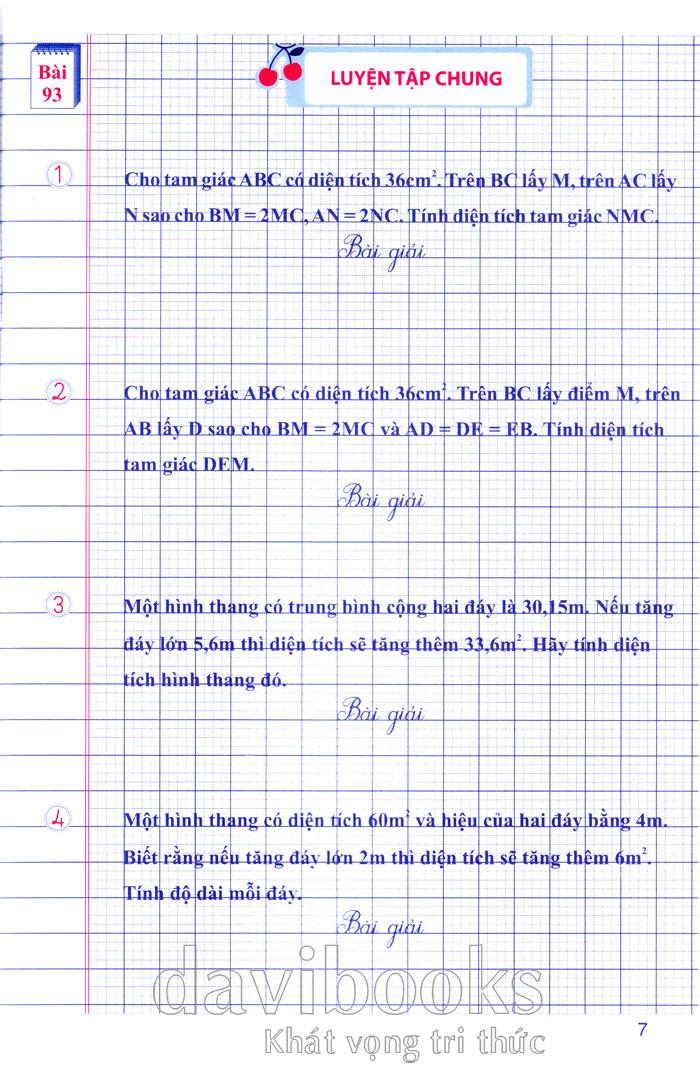 Bài
93
LUYỆN TẬP CHUNG
1
Cho tam giác ABC có diện tích 36cm². Trên BC lấy M, trên AC lấy
N sao cho BM = 2MC, AN = 2NC. Tính diện tích tam giác NMC.
Bài giải
2
Cho tam giác ABC có diện tích 36cm². Trên BC lấy điểm M, trên
AB lấy D sao cho BM = 2MC và AD = DE = EB. Tính diện tích
tam giác DEM.
Bài giải
3
Một hình thang có trung bình cộng hai đáy là 30,15m. Nếu tăng
đáy lớn 5,6m thì diện tích sẽ tăng thêm 33,6m². Hãy tính diện
tích hình thang đó.
Bài giải
4
Một hình thang có diện tích 60m² và hiệu của hai đáy bằng 4m.
Biết rằng nếu tăng đáy lớn 2m thì diện tích sẽ tăng thêm 6m².
Tính độ dài mỗi đáy.
Bài giải
davibooks
Khát vọng tri thức
7